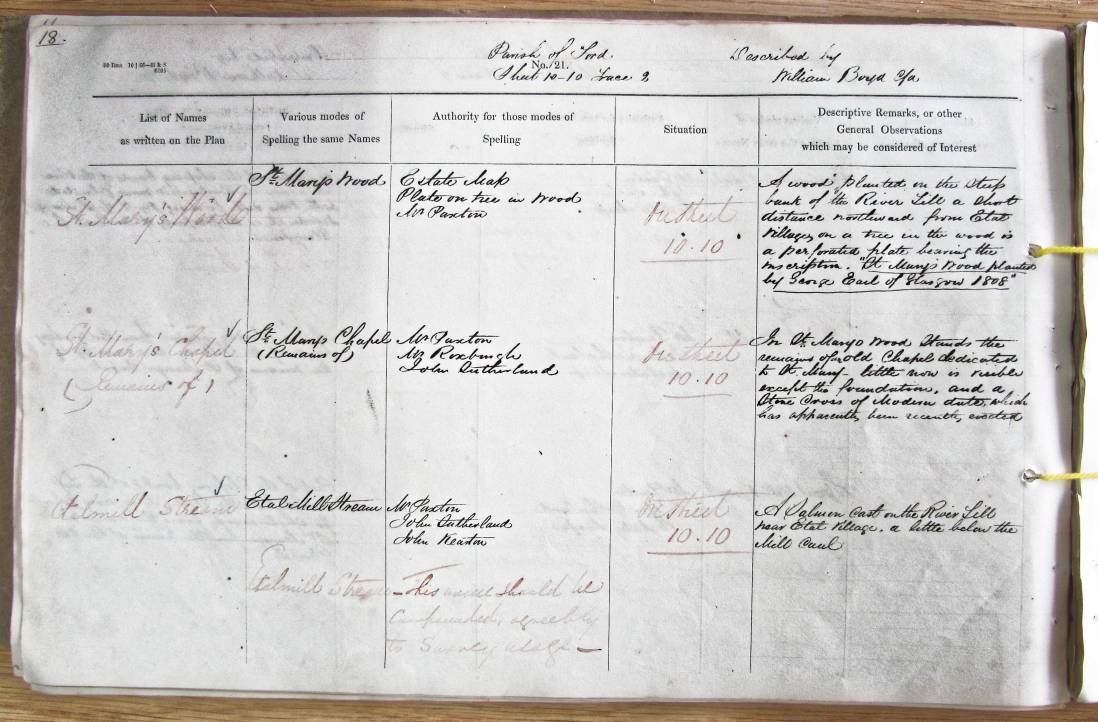 18.
Parish of Ford.
No. 21.
Sheet 10-10 Trace 2
Described by
William Boyd
List of Names
as written on the Plan
Various modes of
Spelling the same Names
Authority for those modes of
Spelling
Situation
Descriptive Remarks, or other
General Observations
which may be considered of Interest
St. Mary's Wood
St. Mary's Wood
Estate Map
Plate on tree in wood
Mr Paxton
On Sheet
10.10
A wood planted on the steep
bank of the River Till a short
distance northward from Etal
Village, on a tree in the wood is
a perforated plate bearing the
inscription. "St. Mary's Wood planted
by George Earl of Glasgow 1808"
St. Mary's Chapel
(Remains of)
St. Mary's Chapel
(Remains of)
Mr Paxton
Mr Roxburgh
John Sutherland
On Sheet
10.10
In St. Mary's Wood Stands the
remains of old Chapel dedicated
to St. Mary - little now is visible
except the foundation, and a
Stone Cross of Modern date, which
has apparently been recently erected
Etalmill Stream
Etal Mill Stream
Mr Paxton
John Sutherland
John
On Sheet
10.10
A Salmon Cast on the River Till
near Etal Village. a little below the
Mill Caul
Etalmill Stream - This name should be
Compounded, agreeably
to Survey usage -